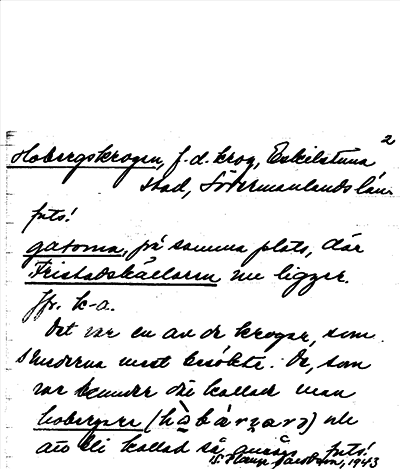 2
Hobergskrogen, f.d. krog, Eskilstuna
stad, Södermanlands län.
forts!
gatorna, på samma plats, där
Fristadskällaren nu ligger.
Jfr. k-a.
Det var en av de krogar, som
smederna mest besökte. De, som
var kunder där kallad man
hobergare
att bli kallad så
forts!
G. Jacobsson, 1943